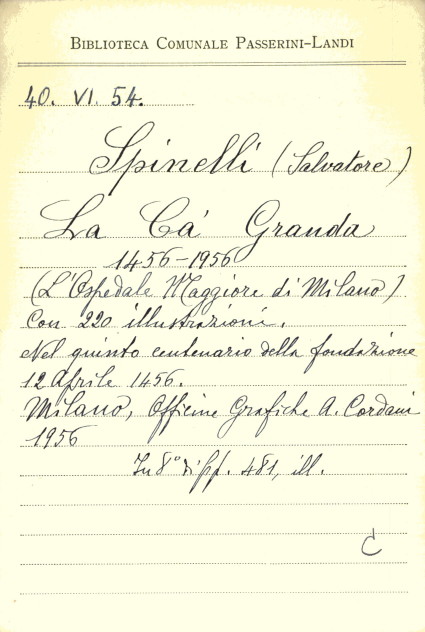 BIBLIOTECA COMUNALE PASSERINI-LANDI
40. VI. 54.
Spinelli (Salvatore)
La Ca' Granda
1456-1956
(L'Ospedale Maggiore di Milano)
Con 220 illustrazioni.
Nel quinto centenario della fondazione
12 Aprile 1456.
Milano, Officine Grafiche A. Cordani
1956
In 8° di pp. 481, ill.
C